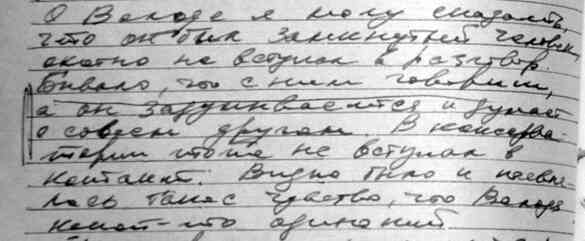 О Володе я могу сказать,
что он был замкнутый человек,
охотно не вступал в разговор.
Бывало, что с ним говоришь,
а он задумывается и думает
о совсем другом. В консерва-
тории тоже не вступал в
контакт. Видно было и
лось такое чувство, что Володя
какой-то одинокий.